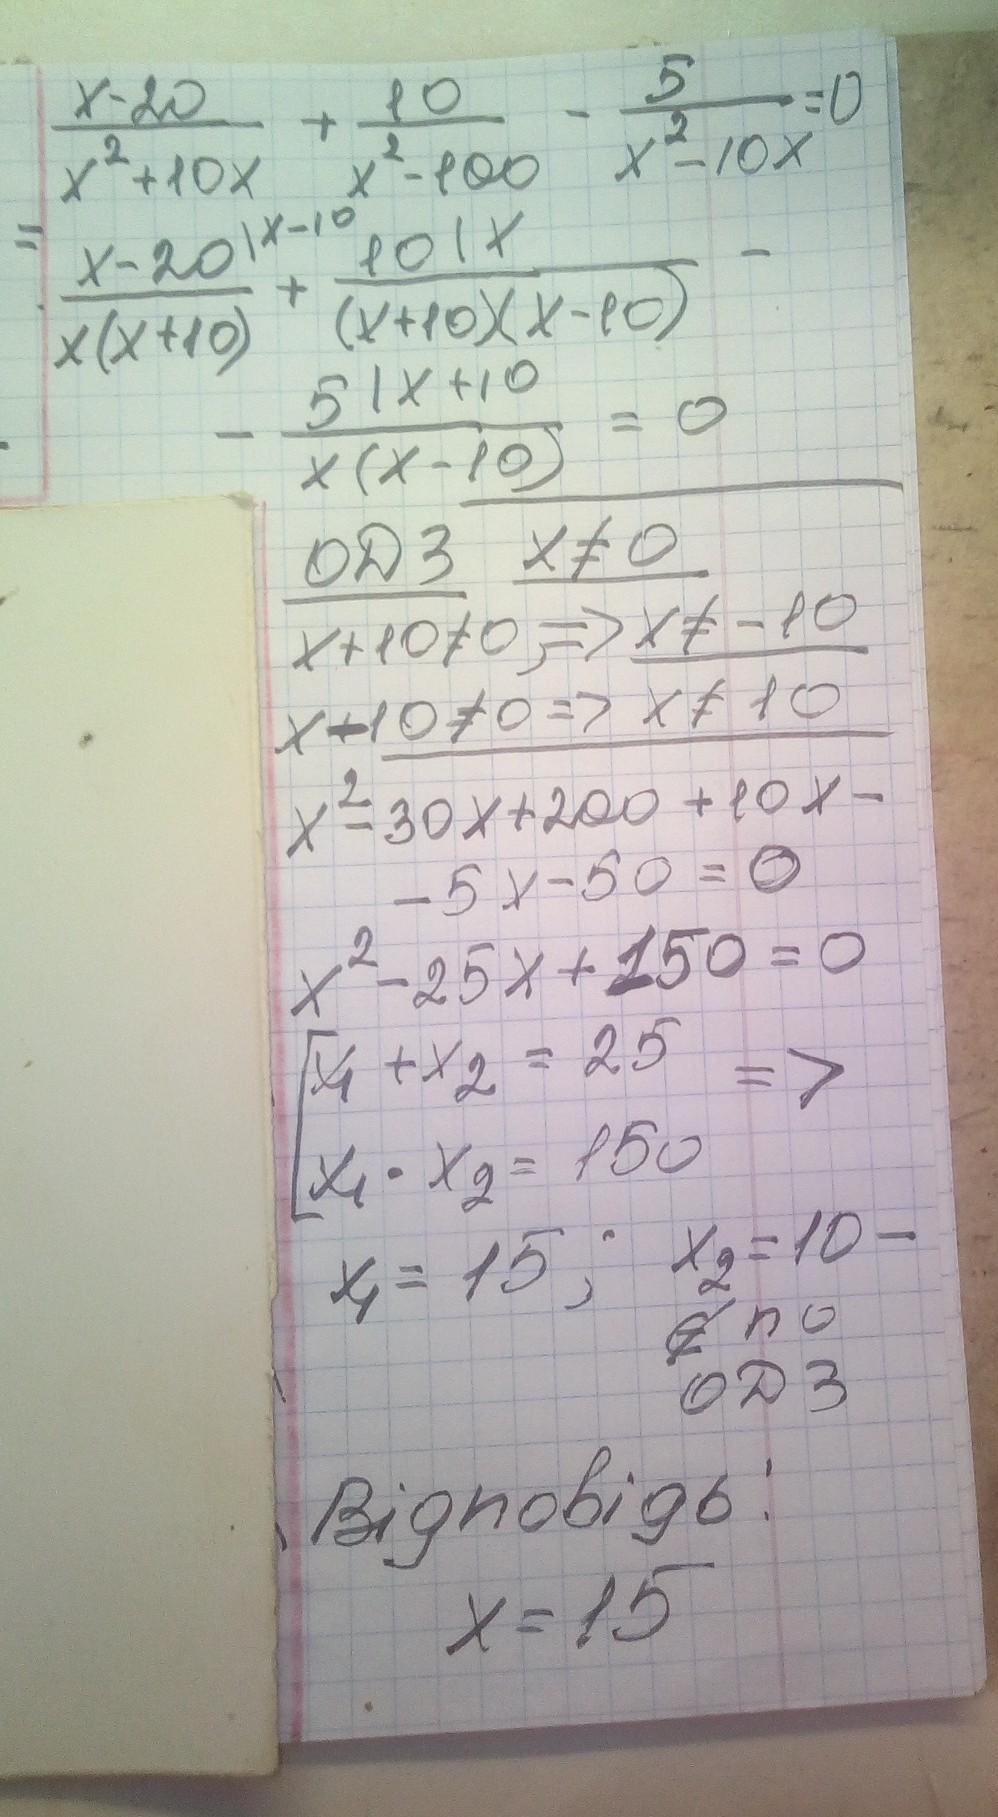 x-20/x²+10x + 10/x²-100 - 5/x²-10x =0
= x-20 |x-10/x(x+10) + 10 |x/(x+10)(x-10) -
- 5 |x+10/x(x-10) = 0
ОДЗ x≠0
x+10≠0, => x≠-10
x-10≠0 => x≠10
x²-30x+200+10x-
-5x-50=0
x²-25x+150=0
[x₁+x₂=25 =>
x₁·x₂=150
x₁=15; x₂=10-
∉ по
ОДЗ
Відповідь:
x=15